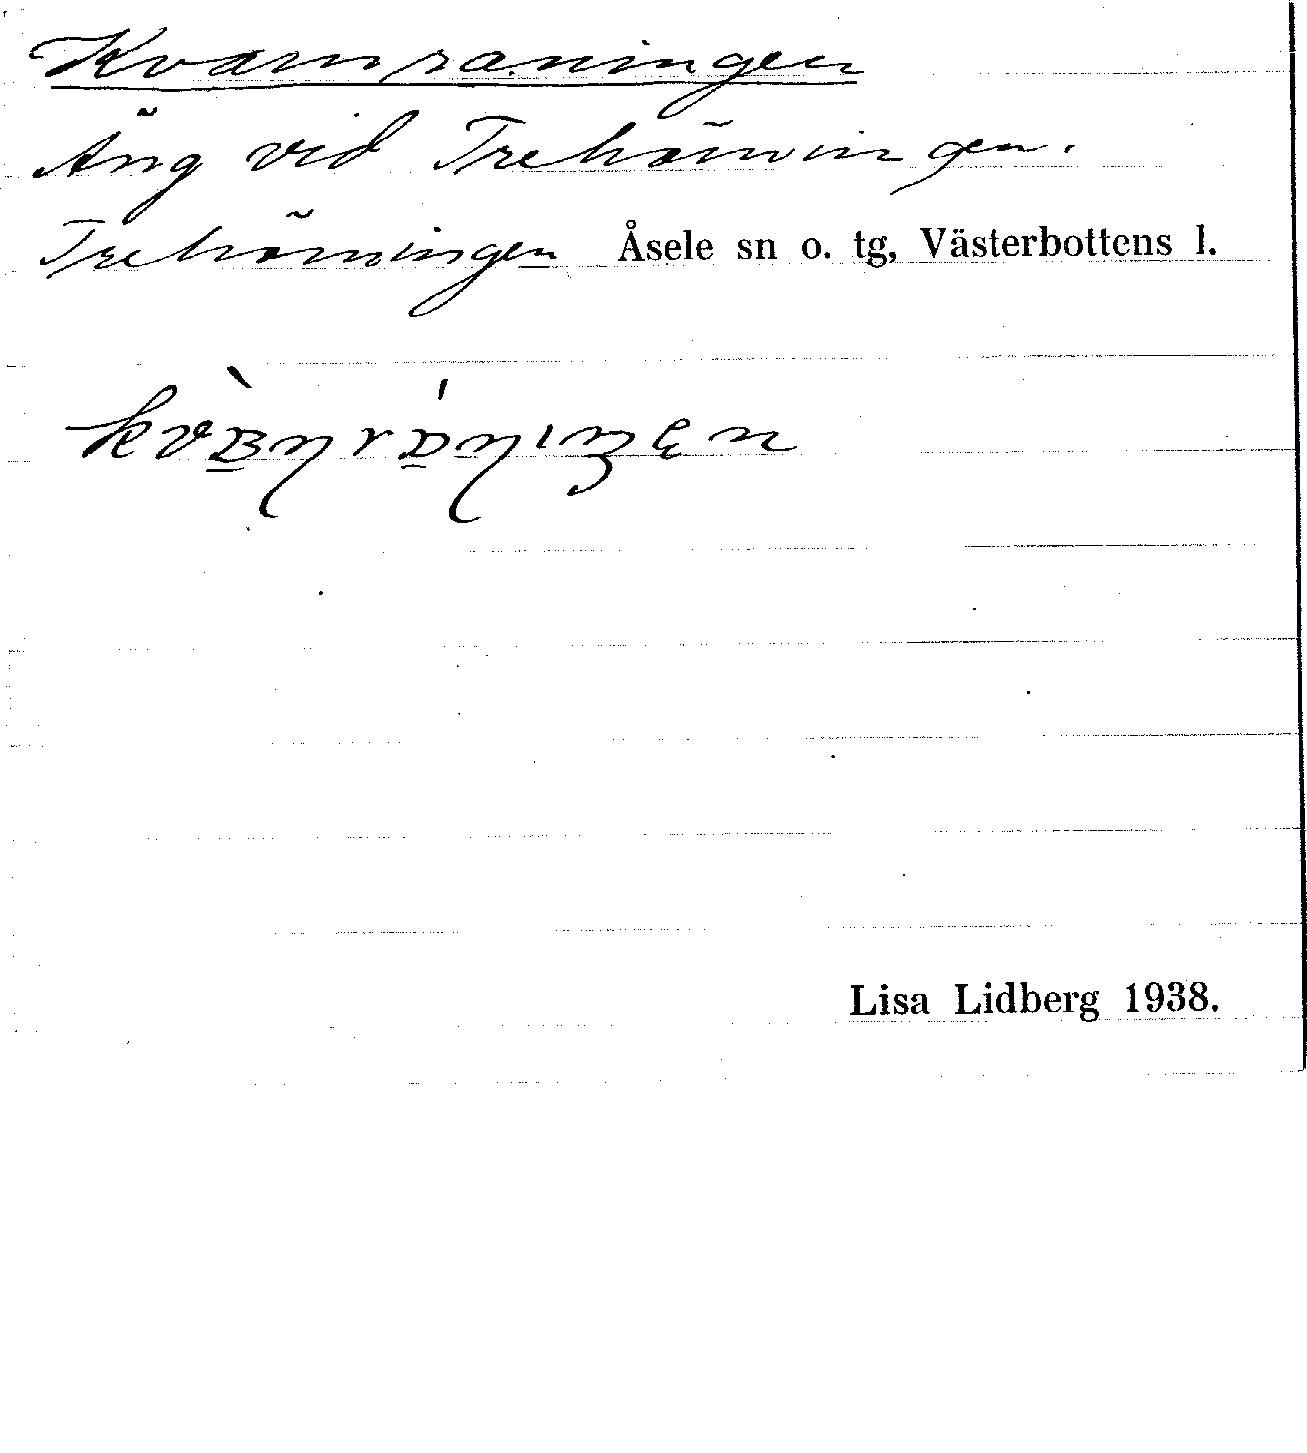 Kvarnraningen
Äng vid Trehörningen.
Trehörningen Åsele sn o. tg, Västerbottens l.
Lisa Lidberg 1938.